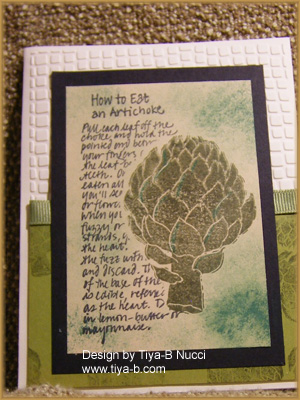 How to Eat
an Artichoke
Pull each leaf off the
choke, and hold the
pointed end
your fingers
the leaf
teeth.
eaten all
you'll
or flower.
when you
fuzzy or
strands,
the heart.
the fuzz with
and discard.
of the base of the
is edible,
as the heart. D
in lemon-butter or
mayonnaise.
Design by Tiya-B Nucci
www.tiya-b.com